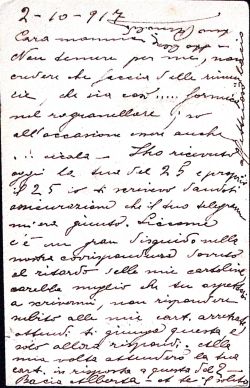 2-10-917
Cara mamma
Non temere per me, non
credere che faccia delle rinun
cie, che sia con .... formica
nel regranellare; so
all'occasione essere anche
... cicala - Ho ricevuto
oggi la tua del 25 e proprio
il 25 io ti scrivevo dandoti
assicurazione che il tuo telegram
m'era giunto. Siccome
c'è un gran disguido nella
nostra corrispondenza dovuto
al ritardo delle mie cartoline
sarebbe meglio che tu aspetti
a scrivermi, non rispondere
subito alle mie cart. arretrate
attendi ti giunga questa e
solo allora rispondi. Alla
mia volta attenderò la tua
cart. in risposta a questa del 2
Bacia Alberta - A te